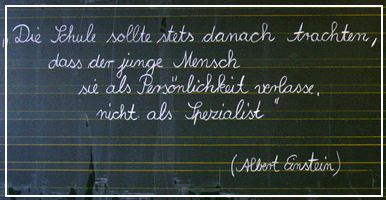 „Die Schule sollte stets danach trachten,
dass der junge Mensch
sie als Persönlichkeit verlasse,
nicht als Spezialist“
(Albert Einstein)